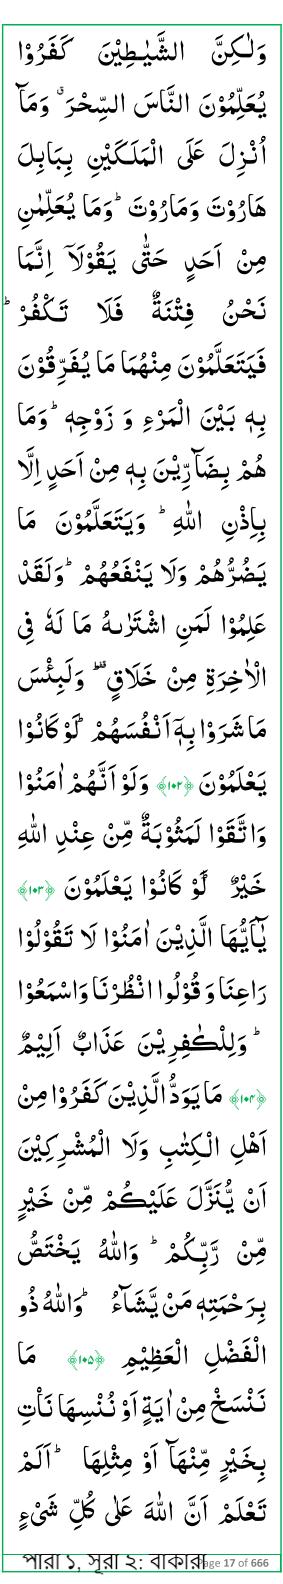 وَلٰكِنَّ الشَّيٰطِيْنَ كَفَرُوْا
يُعَلِّمُوْنَ النَّاسَ السِّحْرَ ۗ وَمَآ
اُنْزِلَ عَلَى الْمَلَكَيْنِ بِبَابِلَ
هَارُوْتَ وَمَارُوْتَ ؕ وَمَا يُعَلِّمٰنِ
مِنْ اَحَدٍ حَتّٰى يَقُوْلَآ اِنَّمَا
نَحْنُ فِتْنَةٌ فَلَا تَكْفُرْ ؕ
فَيَتَعَلَّمُوْنَ مِنْهُمَا مَا يُفَرِّقُوْنَ
بِهٖ بَيْنَ الْمَرْءِ وَ زَوْجِهٖ ؕ وَمَا
هُمْ بِضَآرِّيْنَ بِهٖ مِنْ اَحَدٍ اِلَّا
بِاِذْنِ اللّٰهِ ؕ وَيَتَعَلَّمُوْنَ مَا
يَضُرُّهُمْ وَلَا يَنْفَعُهُمْ ؕ وَلَقَدْ
عَلِمُوْا لَمَنِ اشْتَرٰىهُ مَا لَهٗ فِى
الْاٰخِرَةِ مِنْ خَلَاقٍ ۛؕ وَلَبِئْسَ
مَا شَرَوْا بِهٖٓ اَنْفُسَهُمْ ؕ لَوْ كَانُوْا
يَعْلَمُوْنَ ﴿۱۰۲﴾ وَلَوْ اَنَّهُمْ اٰمَنُوْا
وَاتَّقَوْا لَمَثُوْبَةٌ مِّنْ عِنْدِ اللّٰهِ
خَيْرٌ ؕ لَّوْ كَانُوْا يَعْلَمُوْنَ ﴿۱۰۳﴾
يٰٓاَيُّهَا الَّذِيْنَ اٰمَنُوْا لَا تَقُوْلُوْا
رَاعِنَا وَ قُوْلُوا انْظُرْنَا وَاسْمَعُوْا
ؕ وَلِلْكٰفِرِيْنَ عَذَابٌ اَلِيْمٌ
﴿۱۰۴﴾ مَا يَوَدُّ الَّذِيْنَ كَفَرُوْا مِنْ
اَهْلِ الْكِتٰبِ وَلَا الْمُشْرِكِيْنَ
اَنْ يُّنَزَّلَ عَلَيْكُمْ مِّنْ خَيْرٍ
مِّنْ رَّبِّكُمْ ؕ وَاللّٰهُ يَخْتَصُّ
بِرَحْمَتِهٖ مَنْ يَّشَآءُ ؕ وَاللّٰهُ ذُو
الْفَضْلِ الْعَظِيْمِ ﴿۱۰۵﴾ مَا
نَنْسَخْ مِنْ اٰيَةٍ اَوْ نُنْسِهَا نَاْتِ
بِخَيْرٍ مِّنْهَآ اَوْ مِثْلِهَا ؕ اَلَمْ
تَعْلَمْ اَنَّ اللّٰهَ عَلٰى كُلِّ شَىْءٍ
পারা ১, সূরা ২: বাকারা Page 17 of 666